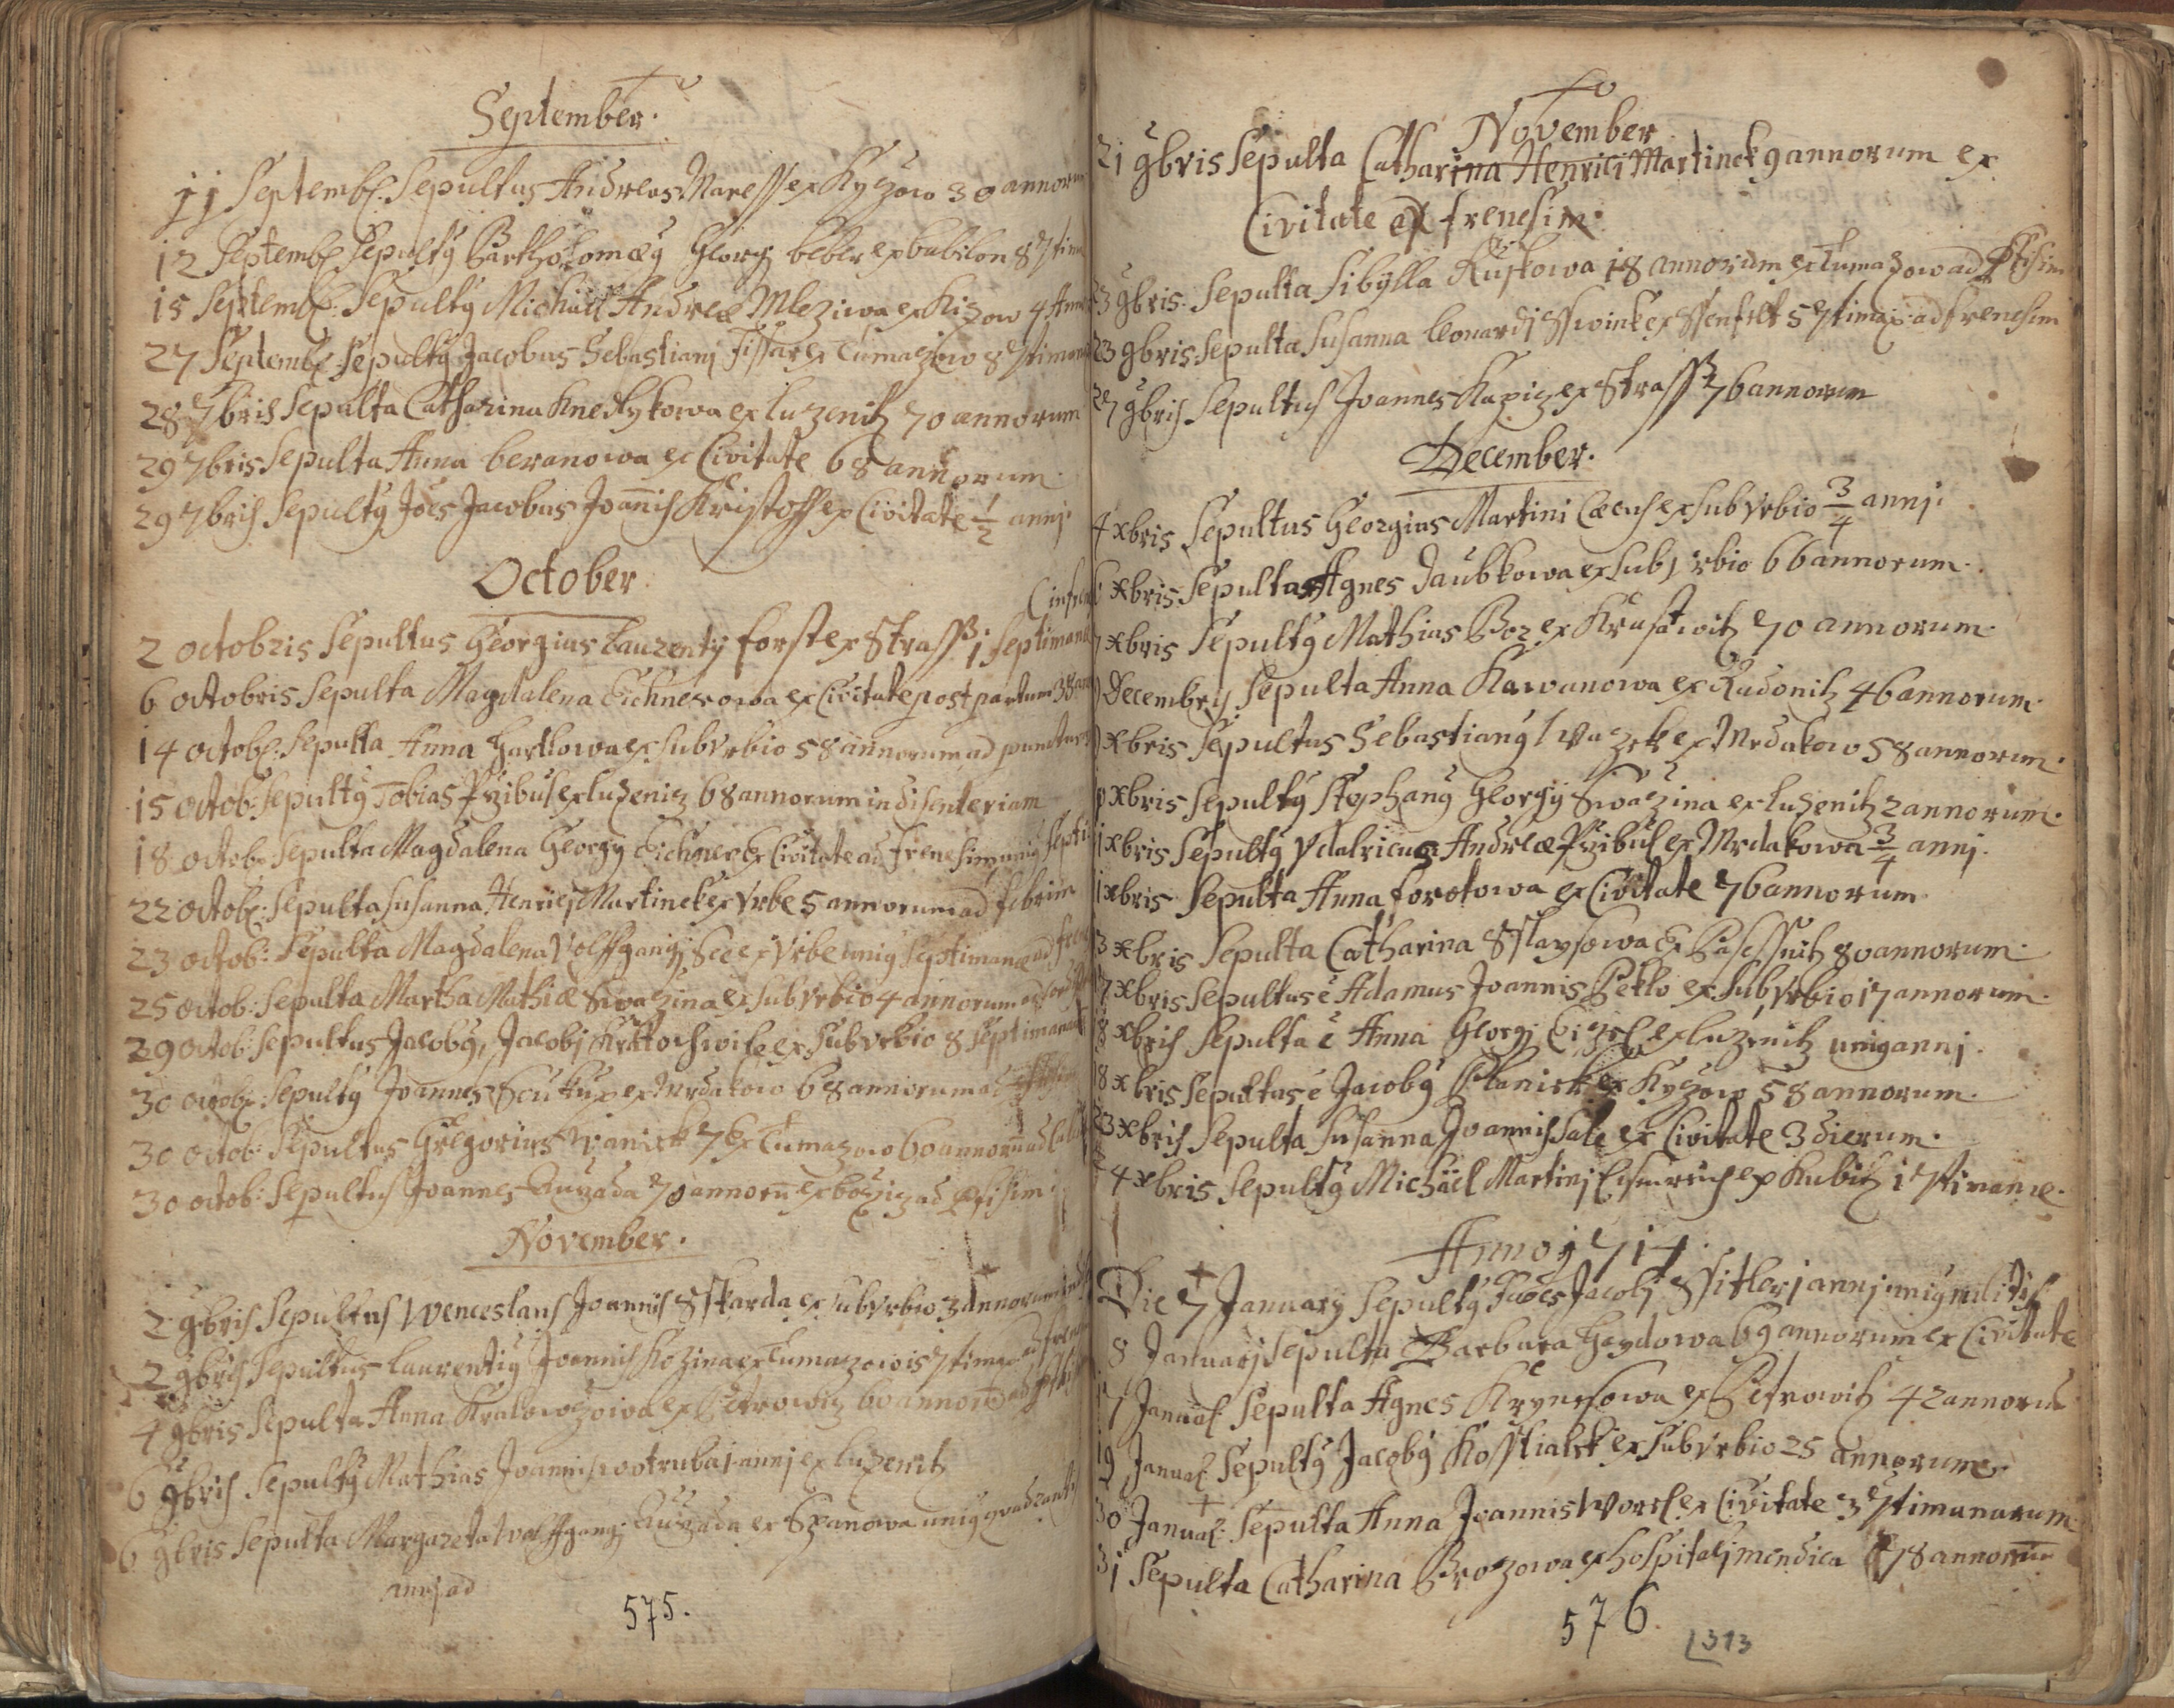 September.
11 Septemb: Sepultus Andreas Maress ex Kyczow 30 annorum
12 Septemb: Sepultus Bartholomæus Georgij beber ex babilon 8 7tima
15 Septemb: Sepultus Michael Andreæ Mleziwa ex Kizow 4 Ann
27 Septemb: Sepultus Jacobus Sebastianj Fissar ex Tumaczow 8 7timana
28 7bris Sepulta Catharina Knedlykowa ex luzenitz 70 annorum
29 7bris Sepulta Anna beranowa ex Civitate 68 annorum.
29 7bris Sepultus Joes Jacobus Joannis Kristoff ex Civitate 1/2 annj.
October
2 octobris Sepultus Georgius Laurentij forst ex Strass 1 Septimanæ
6 octobris Sepulta Magdalena Eichnerowa ex Civitate post partum 38 an
14 octob: Sepulta Anna Hartlowa ex subvrbio 58 annorum ad
15 octob: Sepultus Tobias Przibul ex luzenitz 68 annorum in disenteriam
18 octob: Sepulta Magdalena Georgij Eichner Ex Civitate ad frenesim unius Septi
22 octob: Sepulta Susanna Henricj Martinek ex Vrbe 5 annorum ad febrim
23 octob: Sepulta Magdalena Wolffgangj See ex Vrbe unius Septimanæ ad fren
25 octob: Sepulta Martha Mathiæ Swaczina ex subvrbio 4 annorum
29 octob: Sepultus Jacobus, Jacobj Kratochwile ex subvrbio 8 Septimanar
30 octob: Sepultus Joannes Scukup ex Mrdakow 68 annorum ad
30 octob: Sepultus Gregorius Wanick Ex Tumaczow 60 annorum
30 octob: Sepultus Joannes Duczada 70 annorum ad ptisim
November.
2 9bris Sepultus Wenceslaus Joannis Sskarda ex subvrbio 3 annorum
2 9bris Sepultus laurentius Joannis Kozina ex Tumaczow 15 7timan ad frenes
4 9bris Sepulta Anna Kralowczowa ex Petrowitz 60 annorum ad ptisim
6 9bris Sepultus Mathias Joannis wotruba 1 annj ex luzenitz
6 9bris Sepulta Margareta Wolffgangj Duczada ex Spanowa unius quadrantis
annj ad
575.
November
21 9bris Sepulta Catharina Henrici Martinek 9 annorum ex
Civitate ex frenesim.
23 9bris. Sepulta Sibylla Kustowa 18 annorum ex Tumaczow ad Ptisim
23 9bris Sepulta Susanna leonardj Sswink ex Ssenfelt 5 7timan: ad frenesim
27 9bris Sepultus Joannes Kapicz ex Strass 76 annorum
December.
4 xbris Sepultus Georgius Martini Cæcus ex subvrbio 3/4 annj.
6 xbris Sepulta Agnes Daubkowa ex subvrbio 66 annorum.
7 xbris Sepultus Mathias Boz ex Krastawitz 70 annorum.
9 Decembris Sepulta Anna Kawanowa ex Radonitz 46 annorum.
9 xbris Sepultus Sebastianus Iwaczek ex Mrdakow 58 annorum.
10 xbris Sepultus Stephanus Georgij Swaczina ex luzenitz 2 annorum.
11 xbris Sepultus Vdalricus Andreæ Przibul ex Mrdakowa 3/4 annj.
11 xbris Sepulta Anna forotowa ex Civitate 76 annorum
13 xbris Sepulta Catharina Sslaysowa Ex Passnitz 80 annorum.
17 xbris Sepultus e Adamus Joannis Peklo ex subvrbio 17 annorum.
18 xbris Sepulta e Anna Georgj ex luzenitz unius annj.
18 xbris Sepultus e Jacobus Planick ex Kyczow 58 annorum.
23 xbris Sepulta Susanna Joannis Sale ex Civitate 3 dierum.
24 xbris Sepultus Michäel Martinj ex Kubitz 1 7timanæ.
Anno 1714
Die 7 January Sepultus Joes Jacobj Ssitler 1 annj unius militis
8 Januarj Sepulta Barbara Heydowa 69 annorum ex Civitate
17 Januar: Sepulta Agnes Kryncsowa ex Petrowitz 42 annorum
19 Januar: Sepultus Jacobus Kosstialek ex subvrbio 25 annorum
30 Januar: Sepulta Anna Joannis Worsl ex Civitate 3 7timanarum
31 Sepulta Catharina Brozowa ex hospitalj mendica 78 annorum
576.
313